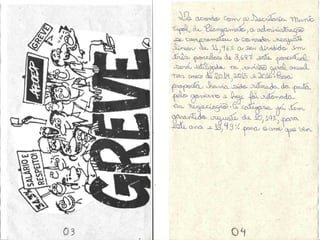 GREVE
ACCEP
MAIS
SALÁRIO E
RESPEITO!
GREVE
03
De acordo com a Secretaria Muni-
cipal, de Planejamento, a administração
se comprometeu a conceder reajuste
linear de 11,96% a ser dividido em
três parcelas de 3,69% este percentual
será na revisão geral anual
nos anos de 2014, 2015 e 2016. Essa
proposta, havia sido retirada da pauta
pelo governo e hoje foi retomada
na negociação. A categoria já tem
garantido reajuste de 10,19%, para
este ano e 13,43% para o ano que vem
04